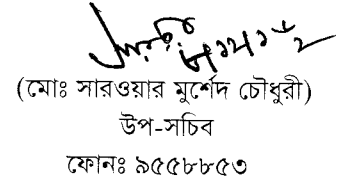 (মোঃ সারওয়ার মুর্শেদ চৌধুরী)
উপ-সচিব
ফোনঃ ৯৫৫৮৮৫৩